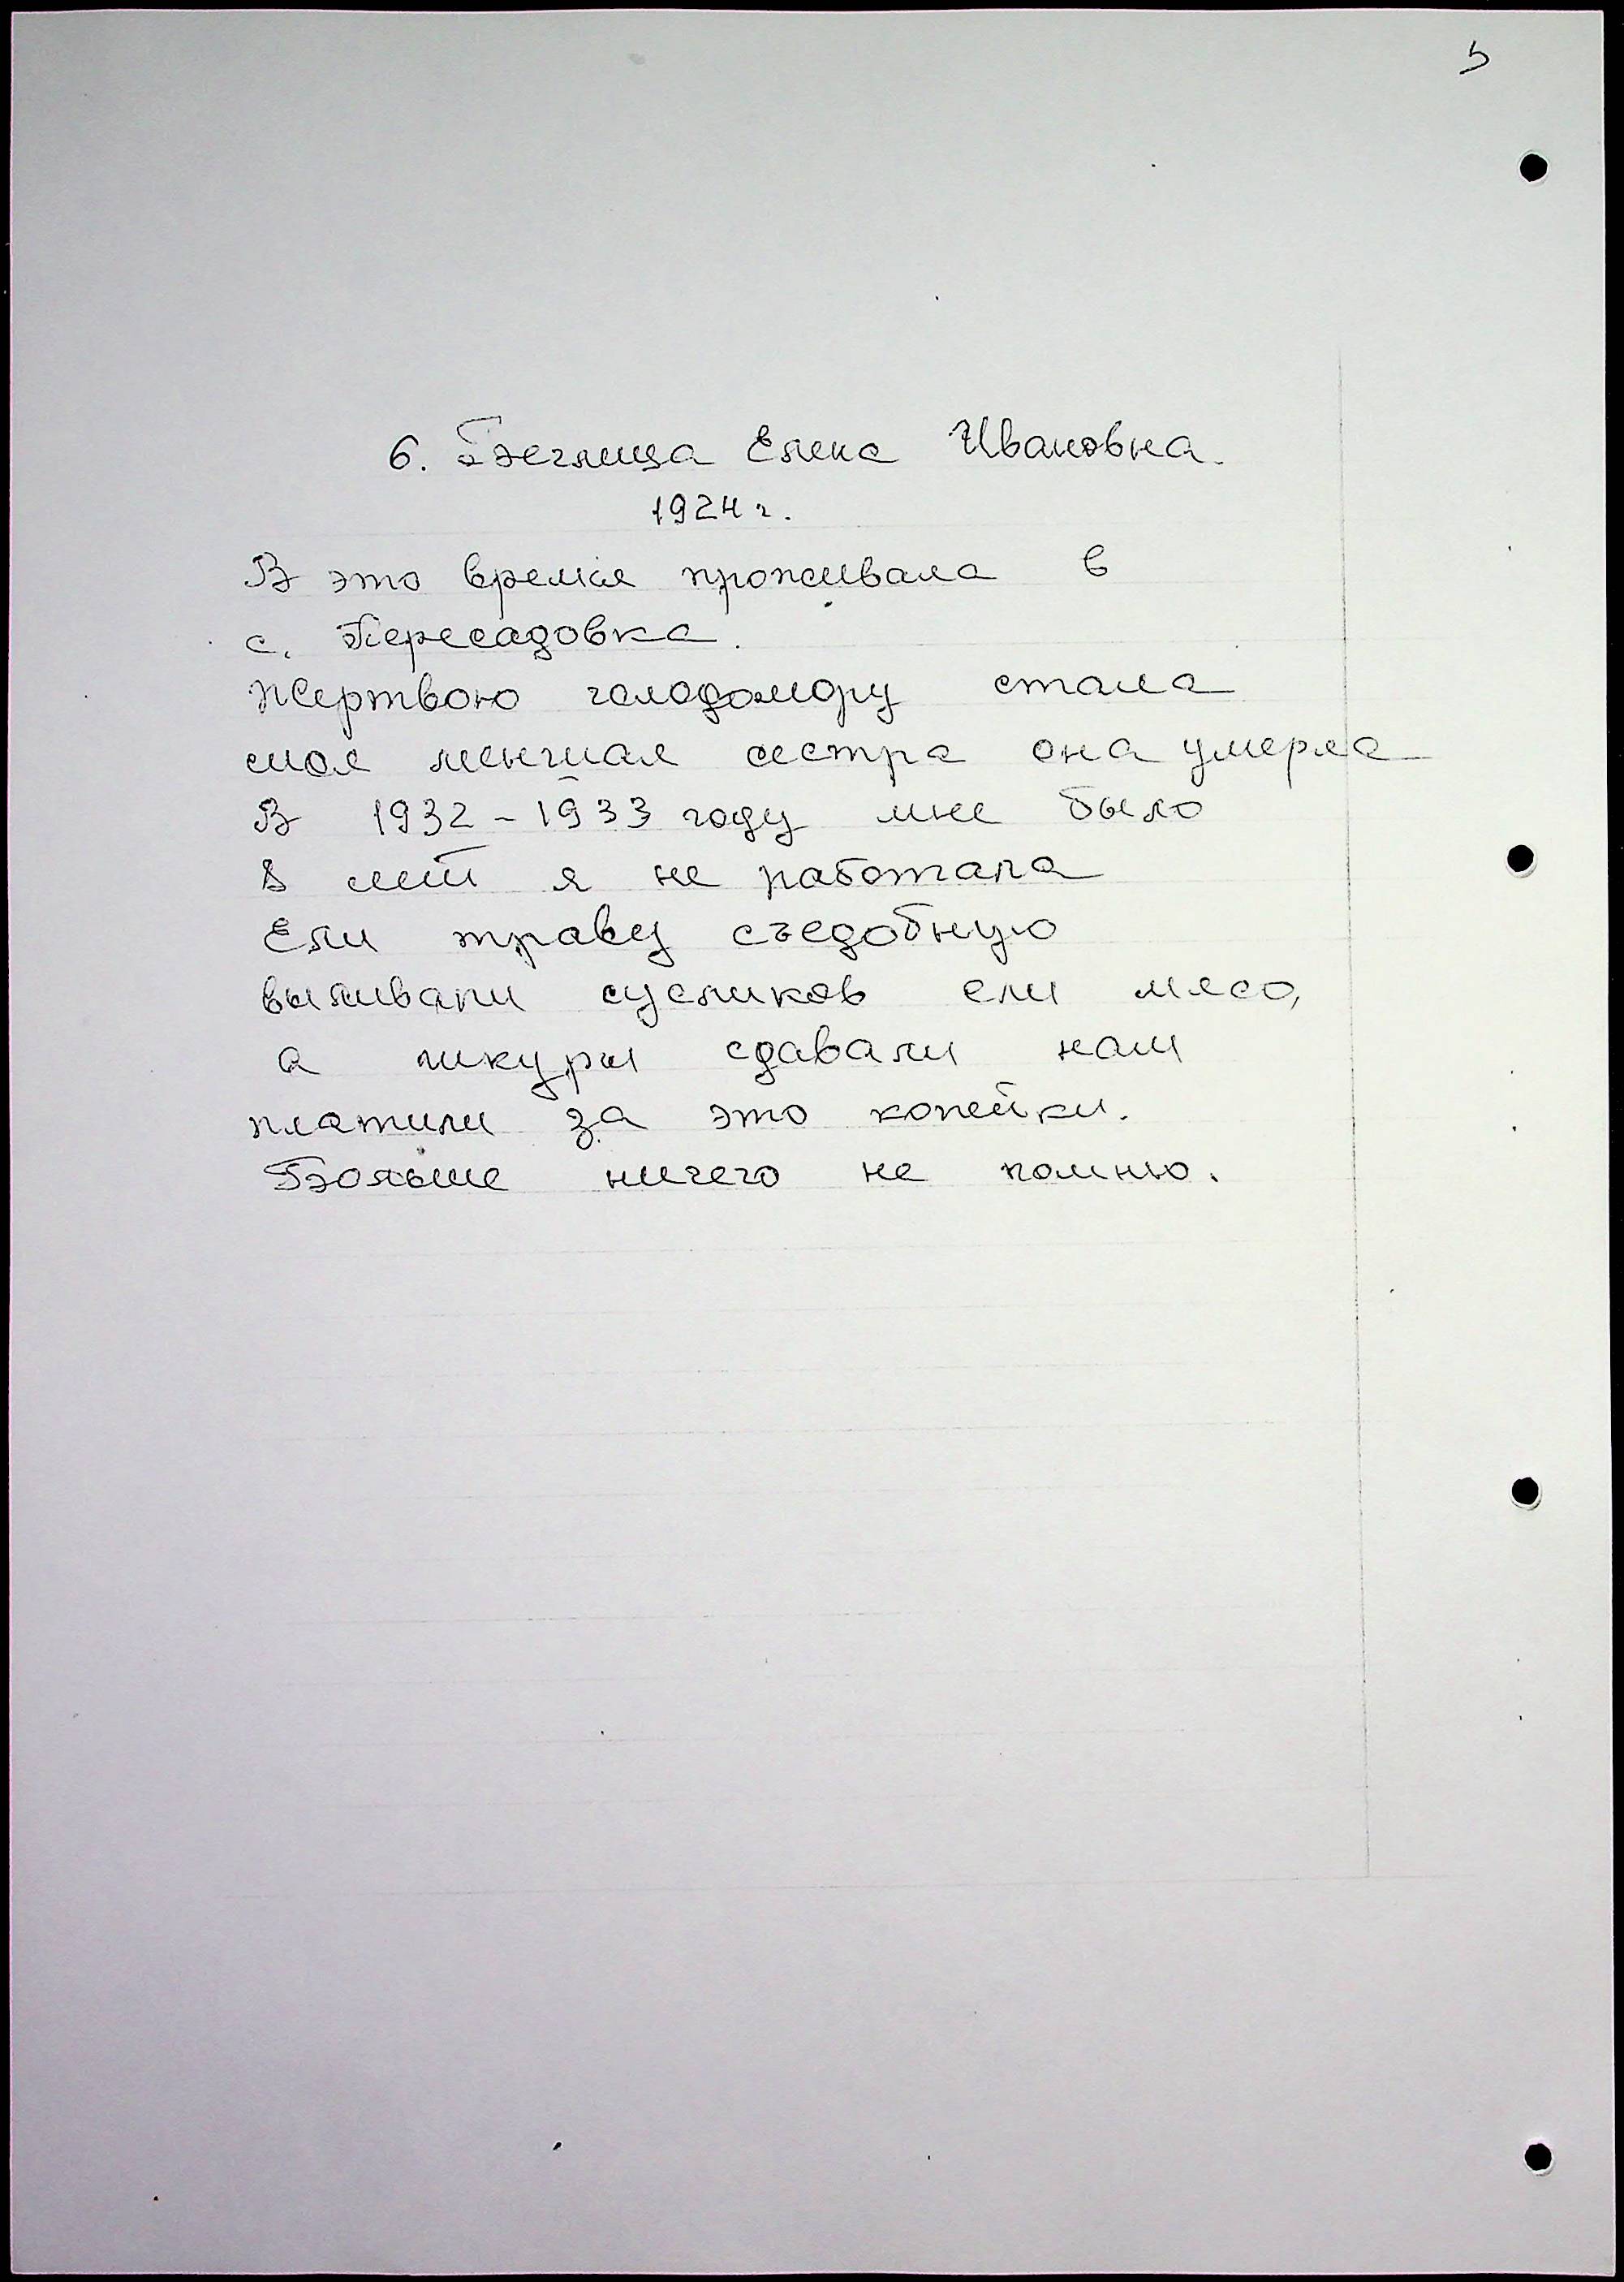 5
6. Беглица Елена Ивановна.
1924 г.
В это время проживала в
с. Пересадовка.
Жертвою голодомору стала
моя меншая сестра она умерла
В 1932-1933 году мне было
8 лет я не работала
Ели траву съедобную
выливали сусликов ели мясо,
а шкуры сдавали нам
платили за это копейки.
Больше ничего не помню.